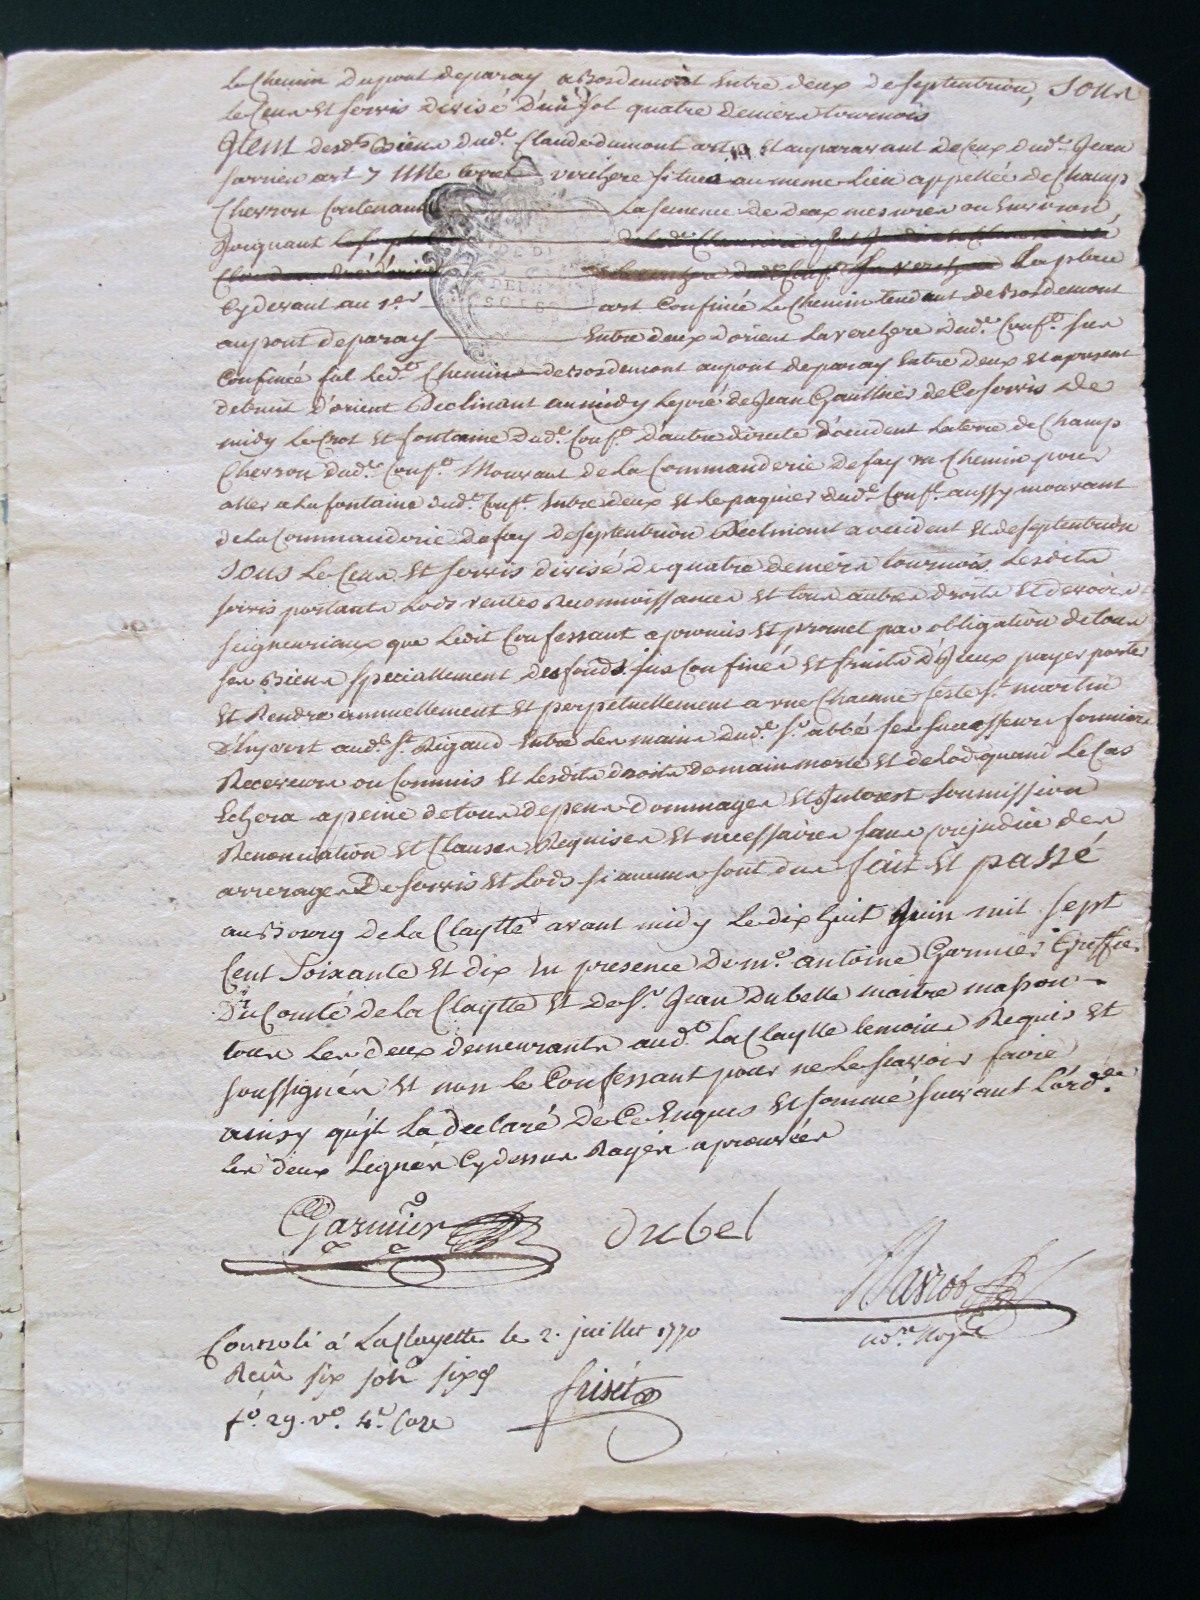 Le Chemin du pont deparay a Bordemont Entre deux de septentrion, Sous
le Cens Et servis divisé d'un sol quatre deniers tournois
Item desd.ts Biens dud.t Claude dumont art Et auparavant de Ceux dud.t Jean
art 7 Une terre verchere située au meme Lieu appellée de Champ
Chevron Contenant La semence de deux mesures ou Environ,
Joignant
La place
Cydevant au 1.er art Confinée Le Chemin tendant de Bordemont
au pont deparay Entre deux d'orient La verchere dud.t Conf.t sus
Confinée fut led.t Chemin de Bordemont au pont deparay Entre deux Et apresent
debruit d'orient Declinant au midy Le pré de Jean Gaulthier de Ce servis de
midy Le Crot Et fontaine dud.t Conf.t d'autre directe d'occident La terre de Champ
Chevron dud.t Conf.t Mouvant de La Commanderie defay un Chemin pour
aller a La fontaine dud.t Conf.t Entre deux Et Le paquier dud.t Conf.t aussy mouvant
de La Commanderie defay de septentrion Declinant a occident Et de septentrion
Sous Le Cens Et servis divisé de quatre deniers tournois Lesdits
servis portants Lods ventes Reconnoissances Et tous autres droits Et devoirs
seigneuriaux que Ledit Confessant a promis Et promet par obligation de tous
ses Biens speciallement des fonds sus Confinés Et fruits d'Iceux payer porter
Et Rendre annuellement Et perpetuellement a une Chacune feste S.t martin
d'hyvert aud.t S.t Rigaud Entre Les mains dud.t S.r abbé ses successeurs fermiers
Receveurs ou Commis Et Lesdits droits de main morte Et de Lod quand Le Cas
Echera a peine de tous depens dommages Et Interest soumission
Renonciation Et Clauses Requises Et necessaires sans prejudice des
arrerages De servis Et Lods si aucuns sont dus fait Et passé
au Bourg de La Claytte avant midy Le dix huit Juin mil sept
Cent Soixante Et dix En presence de m.e antoine Garmier Greffier
Du Comté de La Claytte Et de S.r Jean Dubelle maitre masson
tous Les deux demeurants aud.t La Claytte temoins Requis Et
soussignés Et non le Confessant pour ne le scavoir faire
ainsy qu'il La declaré De Ce Enquis Et sommé suivant L'ord.ce
Les deux Lignes Cydessus Rayés aprouvées
Garmier Dubel
no.re Roy.al
Controlé à La Clayette le 2. juillet 1770
Reçu six sols six d
f.o 29. v.o 4.e Case